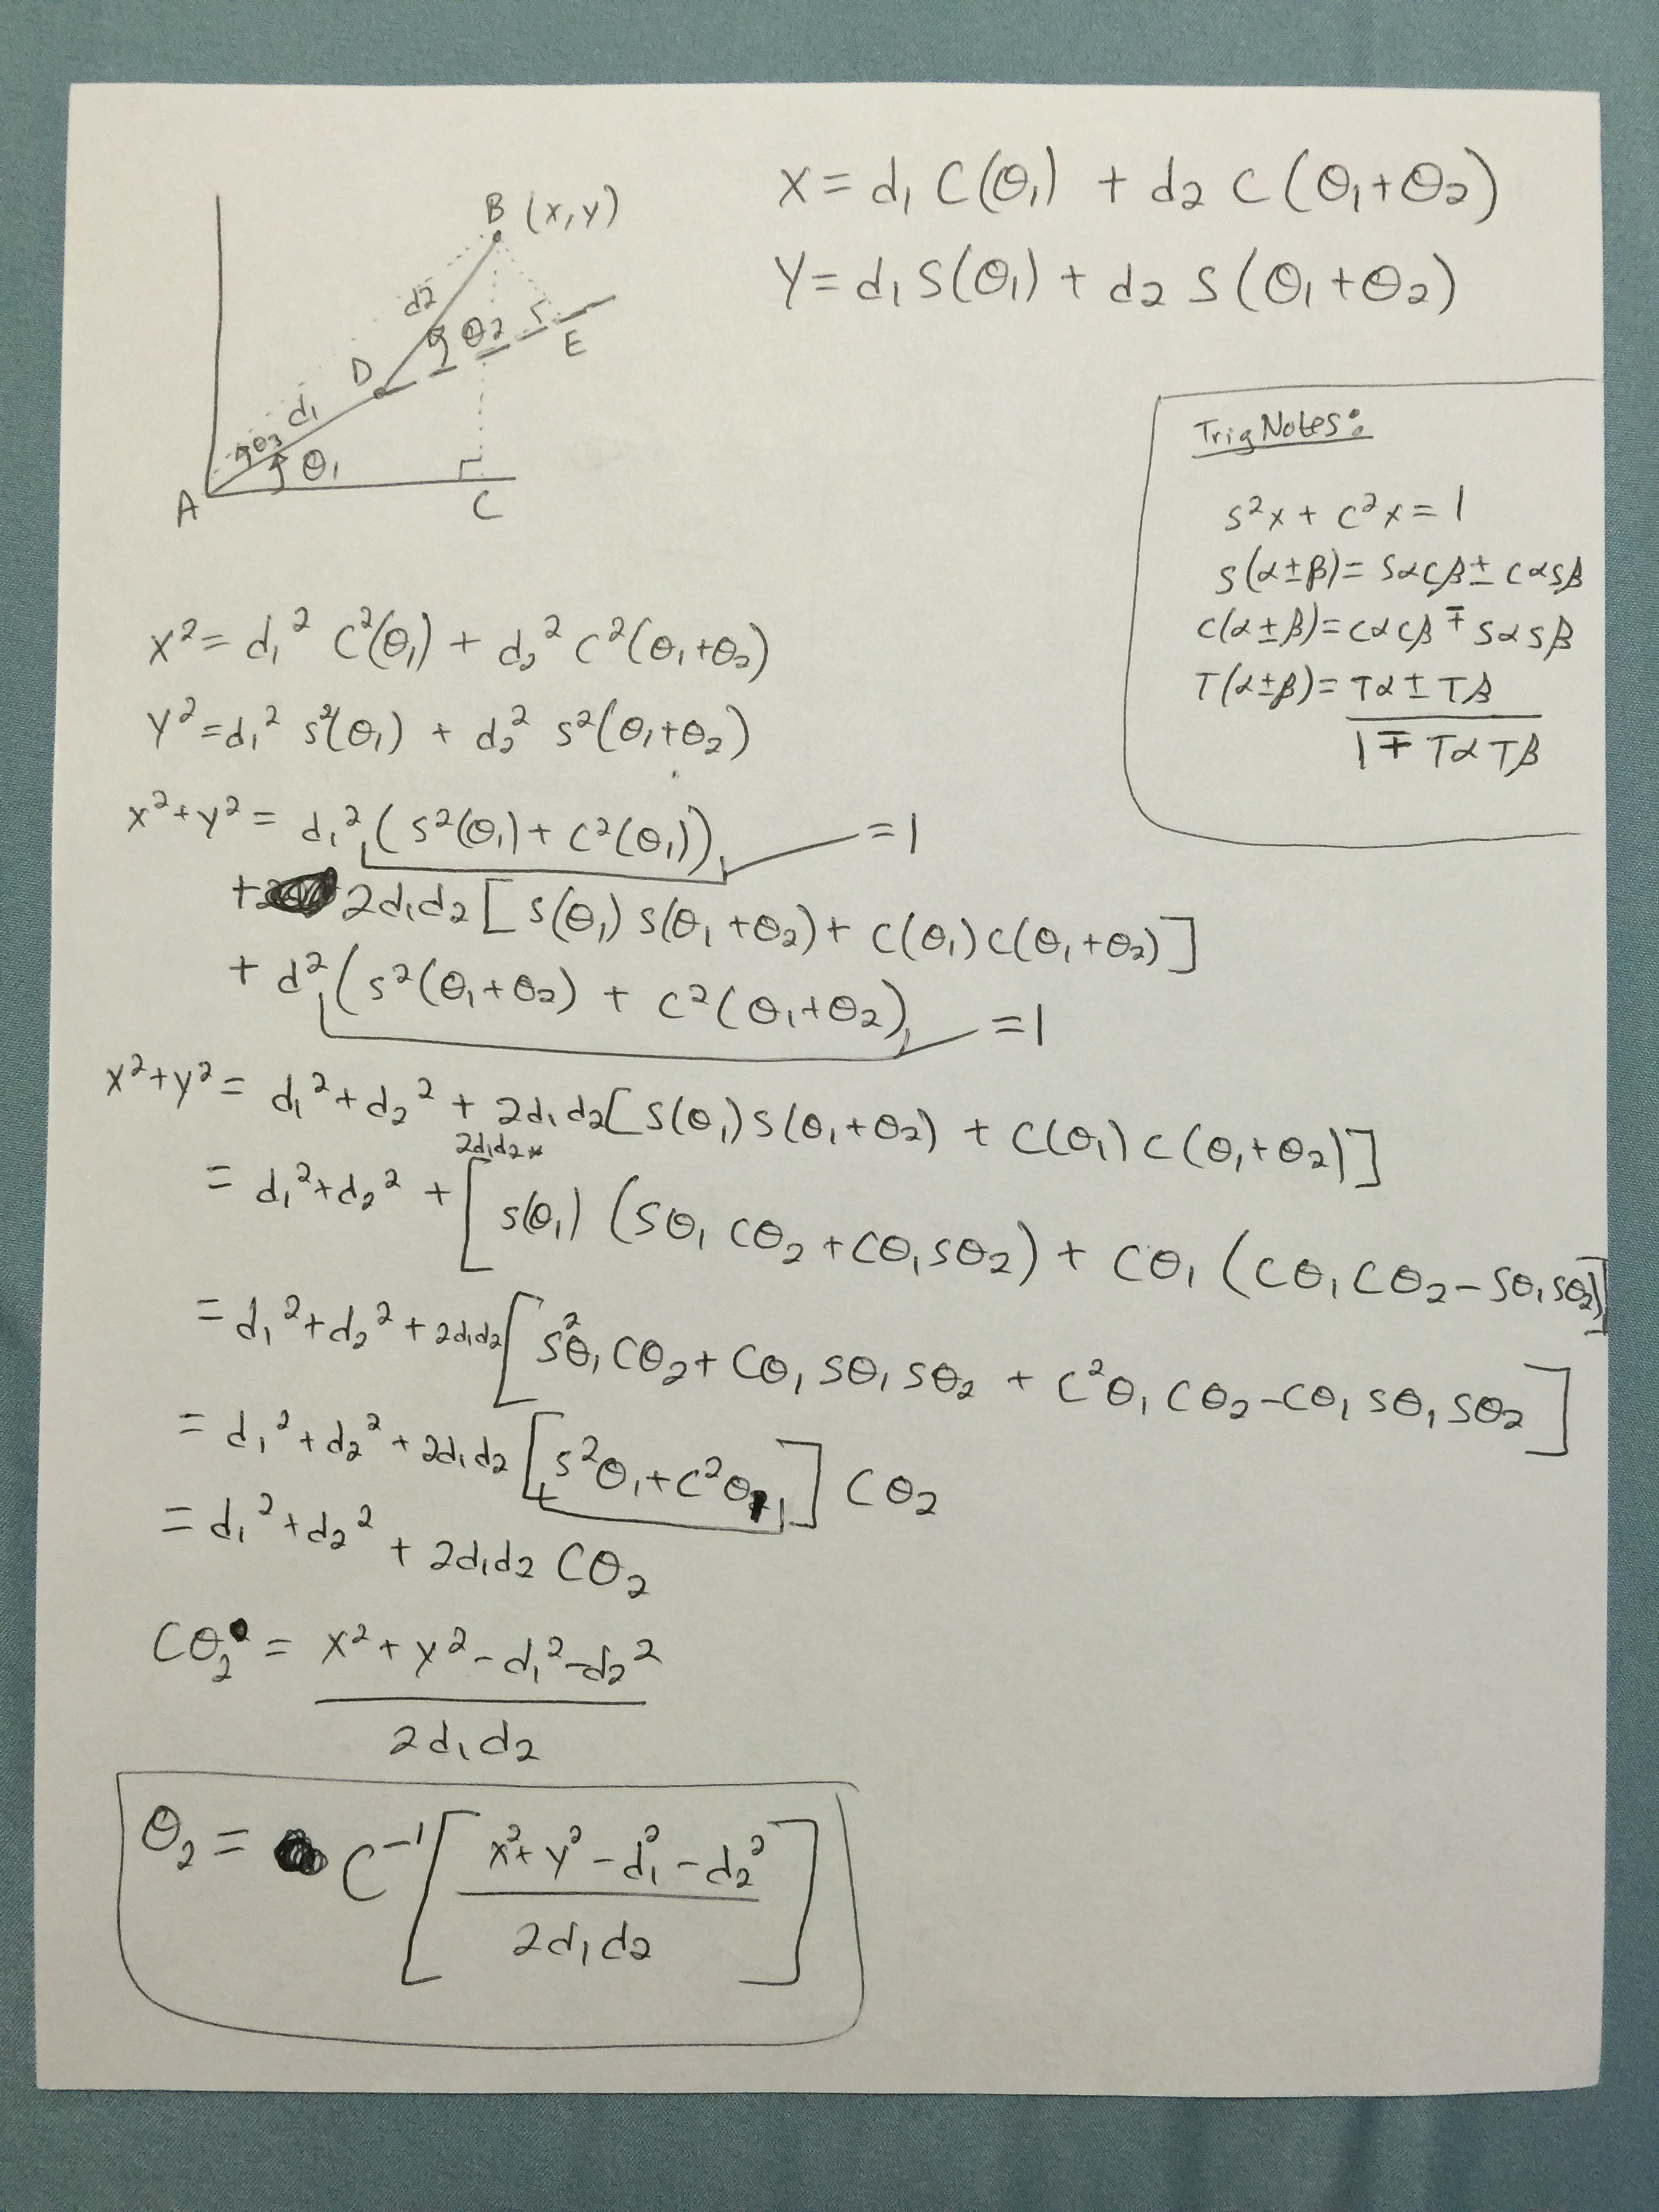 B (x,y)
d2
θ2
E
D
d1
θ3
θ1
A
C
X = d1 C(θ1) + d2 C(θ1+θ2)
Y = d1 S(θ1) + d2 S(θ1+θ2)
Trig Notes:
S²x + C²x = 1
S(α±β) = SαCβ ± CαSβ
C(α±β) = CαCβ ∓ SαSβ
T(α±β) = Tα ± Tβ
1 ∓ TαTβ
x² = d1² C²(θ1) + d2² C²(θ1+θ2)
Y² = d1² S²(θ1) + d2² S²(θ1+θ2)
x²+y² = d1² (S²(θ1) + C²(θ1)) = 1
+ 2d1d2 [S(θ1) S(θ1+θ2) + C(θ1) C(θ1+θ2)]
+ d² (S²(θ1+θ2) + C²(θ1+θ2)) = 1
x²+y² = d1² + d2² + 2d1d2 [S(θ1) S(θ1+θ2) + C(θ1) C(θ1+θ2)]
2d1d2*
= d1² + d2² + [S(θ1) (Sθ1 Cθ2 + Cθ1 Sθ2) + Cθ1 (Cθ1 Cθ2 - Sθ1 Sθ2)]
= d1² + d2² + 2d1d2 [S²θ1 Cθ2 + Cθ1 Sθ1 Sθ2 + C²θ1 Cθ2 - Cθ1 Sθ1 Sθ2]
= d1² + d2² + 2d1d2 [S²θ1 + C²θ1] Cθ2
= d1² + d2² + 2d1d2 Cθ2
Cθ2 = x² + y² - d1² - d2²
2d1d2
θ2 = C⁻¹ [x² + y² - d1² - d2²
2d1d2]